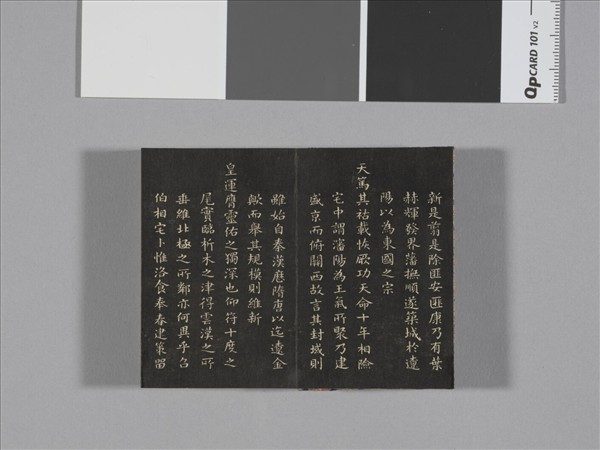 新是前是除匪安匪康乃有葉
赫輝發界藩撫順遂築城於遼
陽以為東國之宗
天篤其祜載恢厥功天命十年相險
宅中謂瀋陽為王氣所聚乃建
盛京而俯關西故言其封域則
雖始自秦漢歷隋唐以迄遼金
歟而舉其規模則維新
皇運膺靈佑之獨深也仰符十度之
尾實臨析木之津得雲漢之所
垂維北極之所鄰亦何異乎召
伯相宅卜惟洛食奉春建策留
QpCARD 101 v2